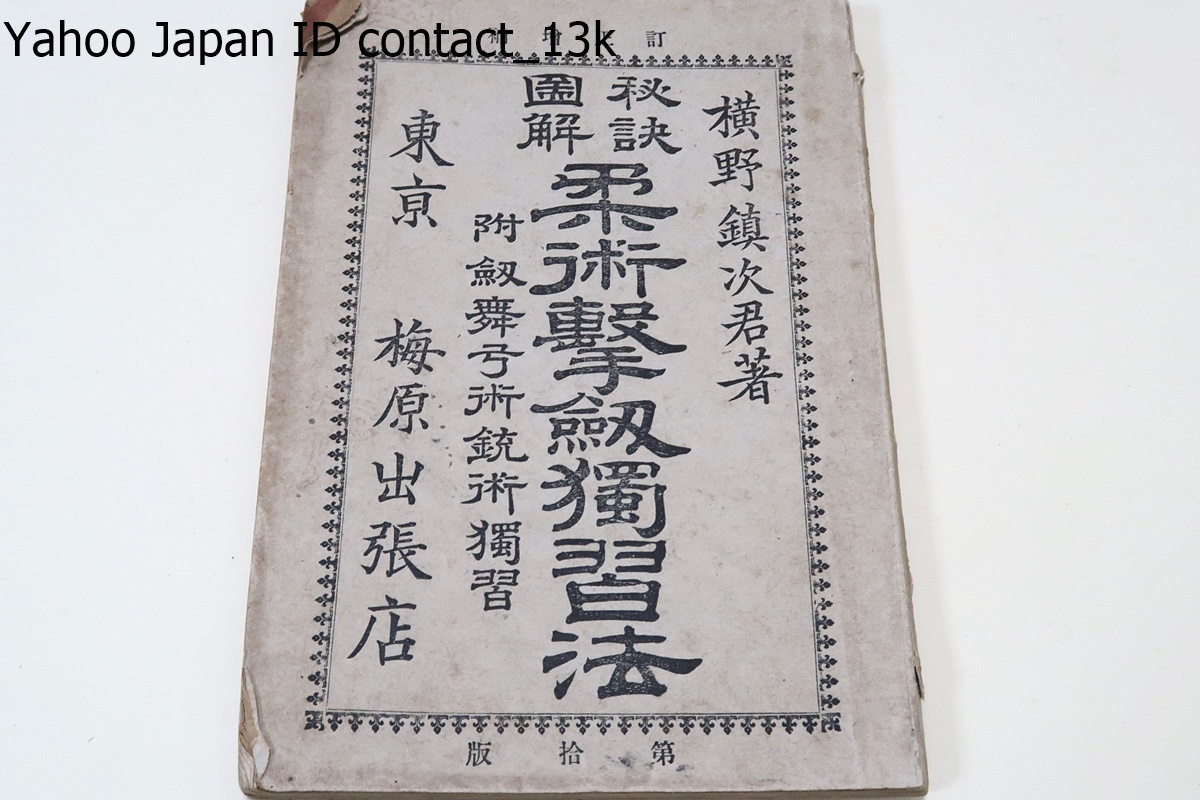 Yahoo Japan ID contact_13k
訂增補
横野鎮次君著
秘訣
圖解
柔術擊劒獨習法
附劒舞弓術銃術獨習
東亰 梅原出張店
第拾版